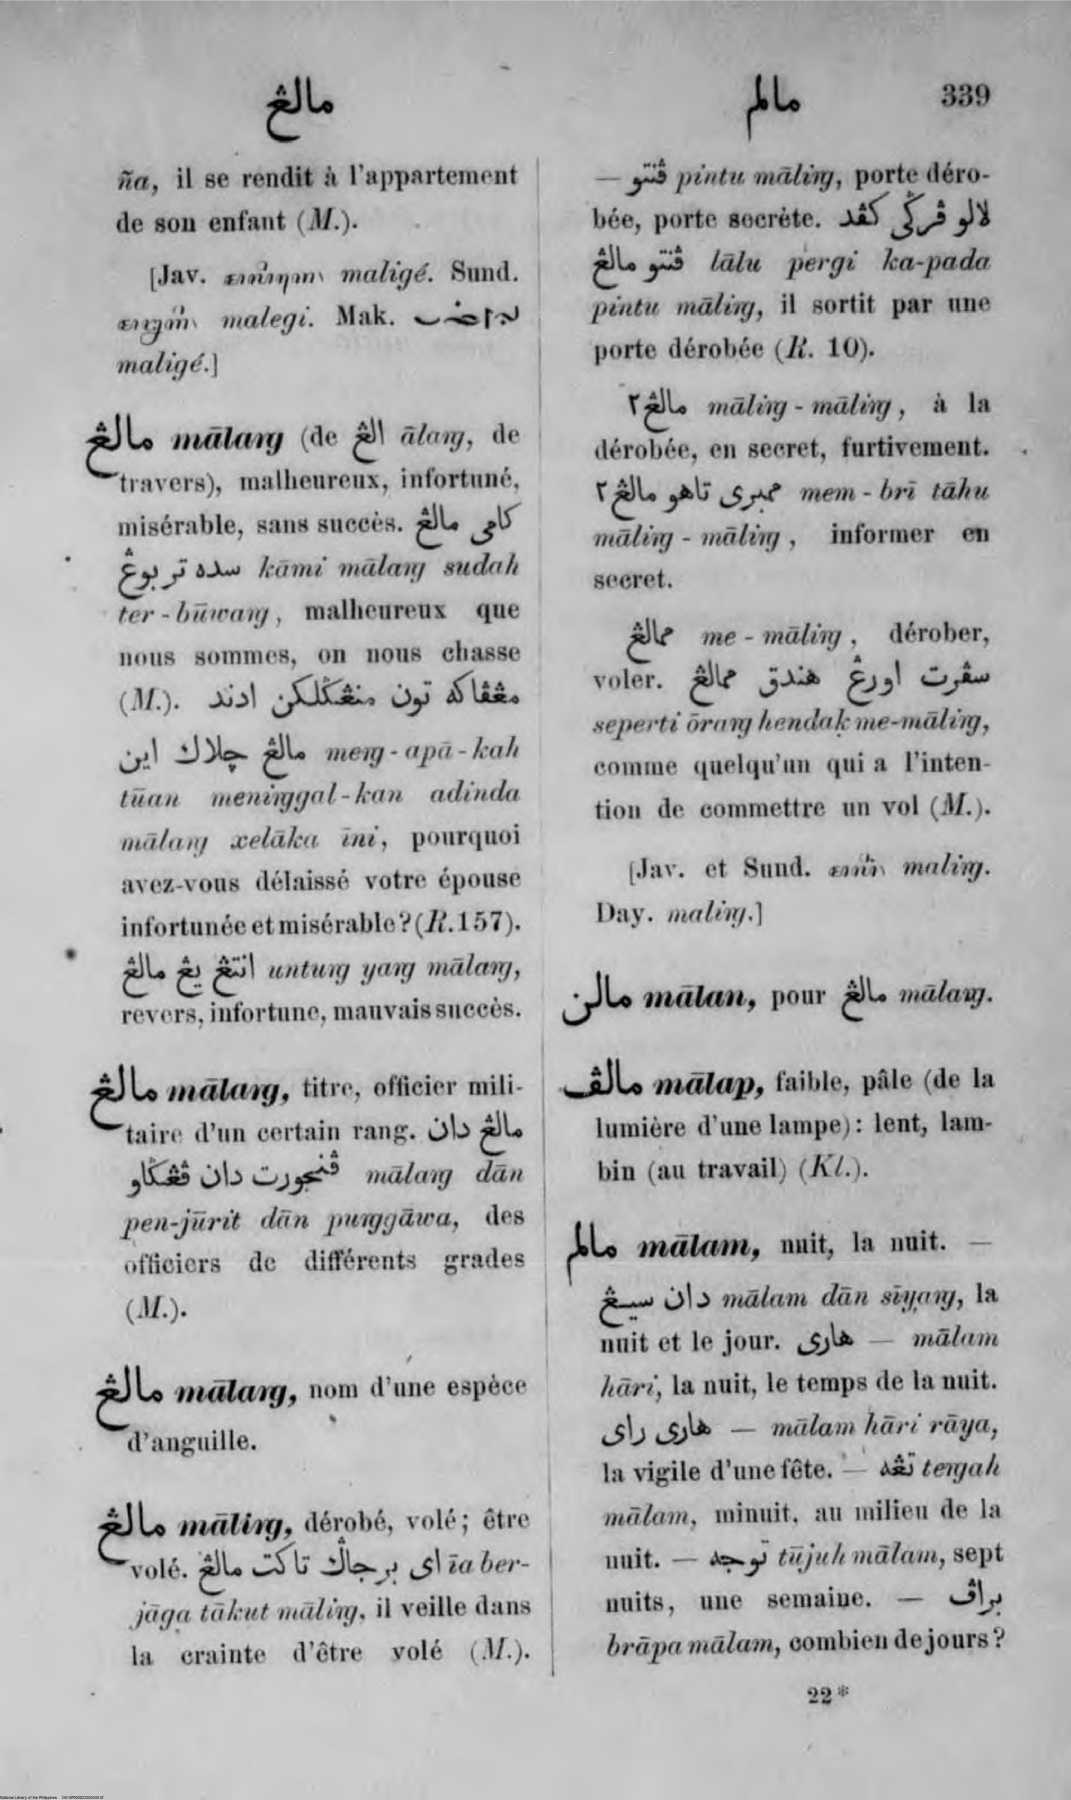 مالڠ
مالم 339
ña, il se rendit à l'appartement
de son enfant (M.).
[Jav. maligé. Sund.
malegi. Mak.
maligé.]
مالڠ mālaꞑ (de الڠ ālaꞑ, de
travers), malheureux, infortuné,
misérable, sans succès. كامي مالڠ
سده تربوڠ kāmi mālaꞑ sudah
ter-būwaꞑ, malheureux que
nous sommes, on nous chasse
(M.). مڠڤاكه تون منڠݢلكن ادند
مالڠ چلاك اين meꞑ-apā-kah
tūan meniꞑgal-kan adinda
mālaꞑ xelāka īni, pourquoi
avez-vous délaissé votre épouse
infortunée et misérable? (R. 157).
انتڠ يڠ مالڠ untuꞑ yaꞑ mālaꞑ,
revers, infortune, mauvais succès.
مالڠ mālaꞑ, titre, officier mili-
taire d'un certain rang. مالڠ دان
ڤنجورت دان ڤڠݢاو mālaꞑ dān
pen-jūrit dān puꞑgāwa, des
officiers de différents grades
(M.).
مالڠ mālaꞑ, nom d'une espèce
d'anguille.
مالڠ māliꞑ, dérobé, volé; être
volé. اى برجاݢ تاكت مالڠ īa ber-
jāga tākut māliꞑ, il veille dans
la crainte d'être volé (M.).
— ڤنتو pintu māliꞑ, porte déro-
bée, porte secrète. لالو ڤرݢي كڤد
ڤنتو مالڠ lālu pergi ka-pada
pintu māliꞑ, il sortit par une
porte dérobée (R. 10).
مالڠ٢ māliꞑ-māliꞑ, à la
dérobée, en secret, furtivement.
ممبرى تاهو مالڠ٢ mem-brī tāhu
māliꞑ-māliꞑ, informer en
secret.
ممالڠ me-māliꞑ, dérober,
voler. سڤرت اورڠ هندق ممالڠ
seperti ōraꞑ hendaḳ me-māliꞑ,
comme quelqu'un qui a l'inten-
tion de commettre un vol (M.).
[Jav. et Sund. maliꞑ.
Day. maliꞑ.]
مالن mālan, pour مالڠ mālaꞑ.
مالڤ mālap, faible, pâle (de la
lumière d'une lampe): lent, lam-
bin (au travail) (Kl.).
مالم mālam, nuit, la nuit. —
دان سيڠ mālam dān sīyaꞑ, la
nuit et le jour. هارى — mālam
hāri, la nuit, le temps de la nuit.
هارى راى — mālam hāri rāya,
la vigile d'une fête. — تڠه teꞑah
mālam, minuit, au milieu de la
nuit. — توجه tūjuh mālam, sept
nuits, une semaine. — براڤ
brāpa mālam, combien de jours?
22*